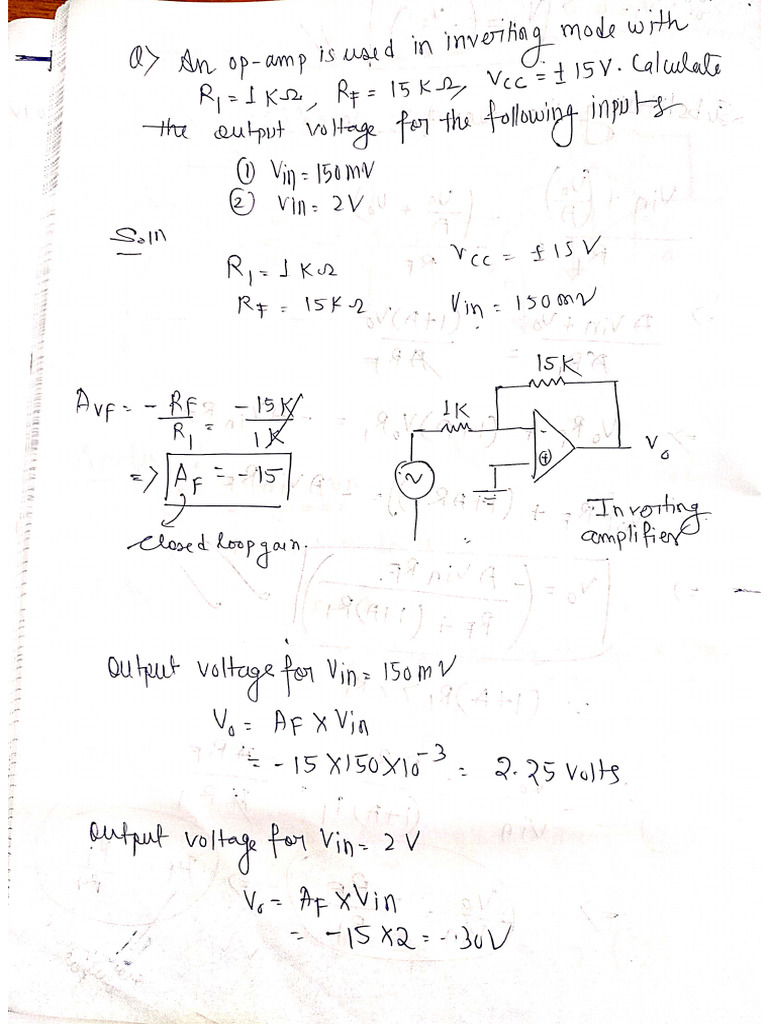 Q) An op-amp is used in inverting mode with
R1 = 1 KΩ, RF = 15 KΩ, VCC = ± 15V. Calculate
the output voltage for the following inputs
① Vin = 150 mV
② Vin = 2V
Soln
R1 = 1 KΩ VCC = ± 15 V
RF = 15KΩ Vin = 150 mV
15K
1K
AVF = - RF/R1 = -15K/1K
=> AF = -15
closed loop gain.
- + Vo
Inverting
amplifier
Output voltage for Vin = 150 mV
Vo = AF X Vin
= - 15 X 150 X 10^-3 = 2.25 Volts
Output voltage for Vin = 2 V
Vo = AF X Vin
= -15 X 2 = -30V